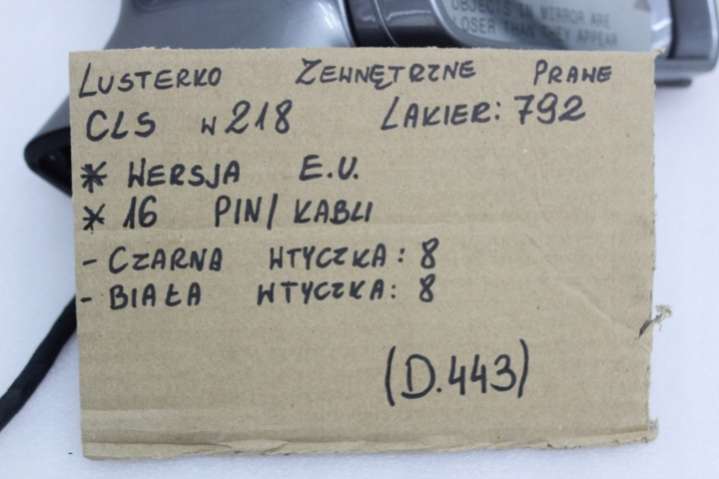 OBJECTS IN MIRROR ARE
LOSER THAN THEY APPEAR
LUSTERKO ZEWNĘTRZNE PRAWE
CLS W218 LAKIER: 792
* WERSJA E.U.
* 16 PIN/KABLI
- CZARNA WTYCZKA: 8
- BIAŁA WTYCZKA: 8
(D.443)